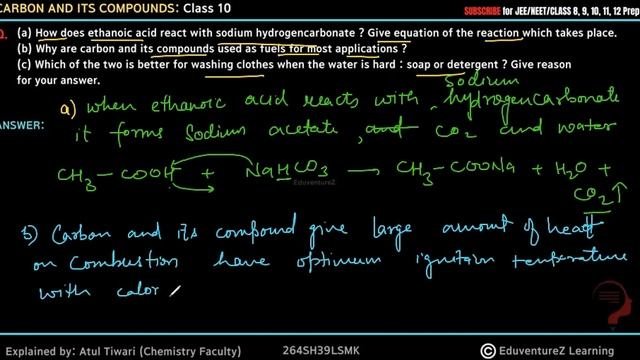 CARBON AND ITS COMPOUNDS: Class 10
SUBSCRIBE for JEE/NEET/CLASS 8, 9, 10, 11, 12 Prep
Q. (a) How does ethanoic acid react with sodium hydrogencarbonate ? Give equation of the reaction which takes place.
(b) Why are carbon and its compounds used as fuels for most applications ?
(c) Which of the two is better for washing clothes when the water is hard : soap or detergent ? Give reason
for your answer.
ANSWER:
a) when ethanoic acid reacts with sodium hydrogencarbonate
it forms Sodium acetate, and CO2 and water
CH3-COOH + NaHCO3 → CH3-COONa + H2O +
CO2↑
EduventureZ
b) Carbon and its compound give large amount of heat
on Combustion have optimum ignitain temperature
with calor
Explained by: Atul Tiwari (Chemistry Faculty)
264SH39LSMK
EduventureZ Learning